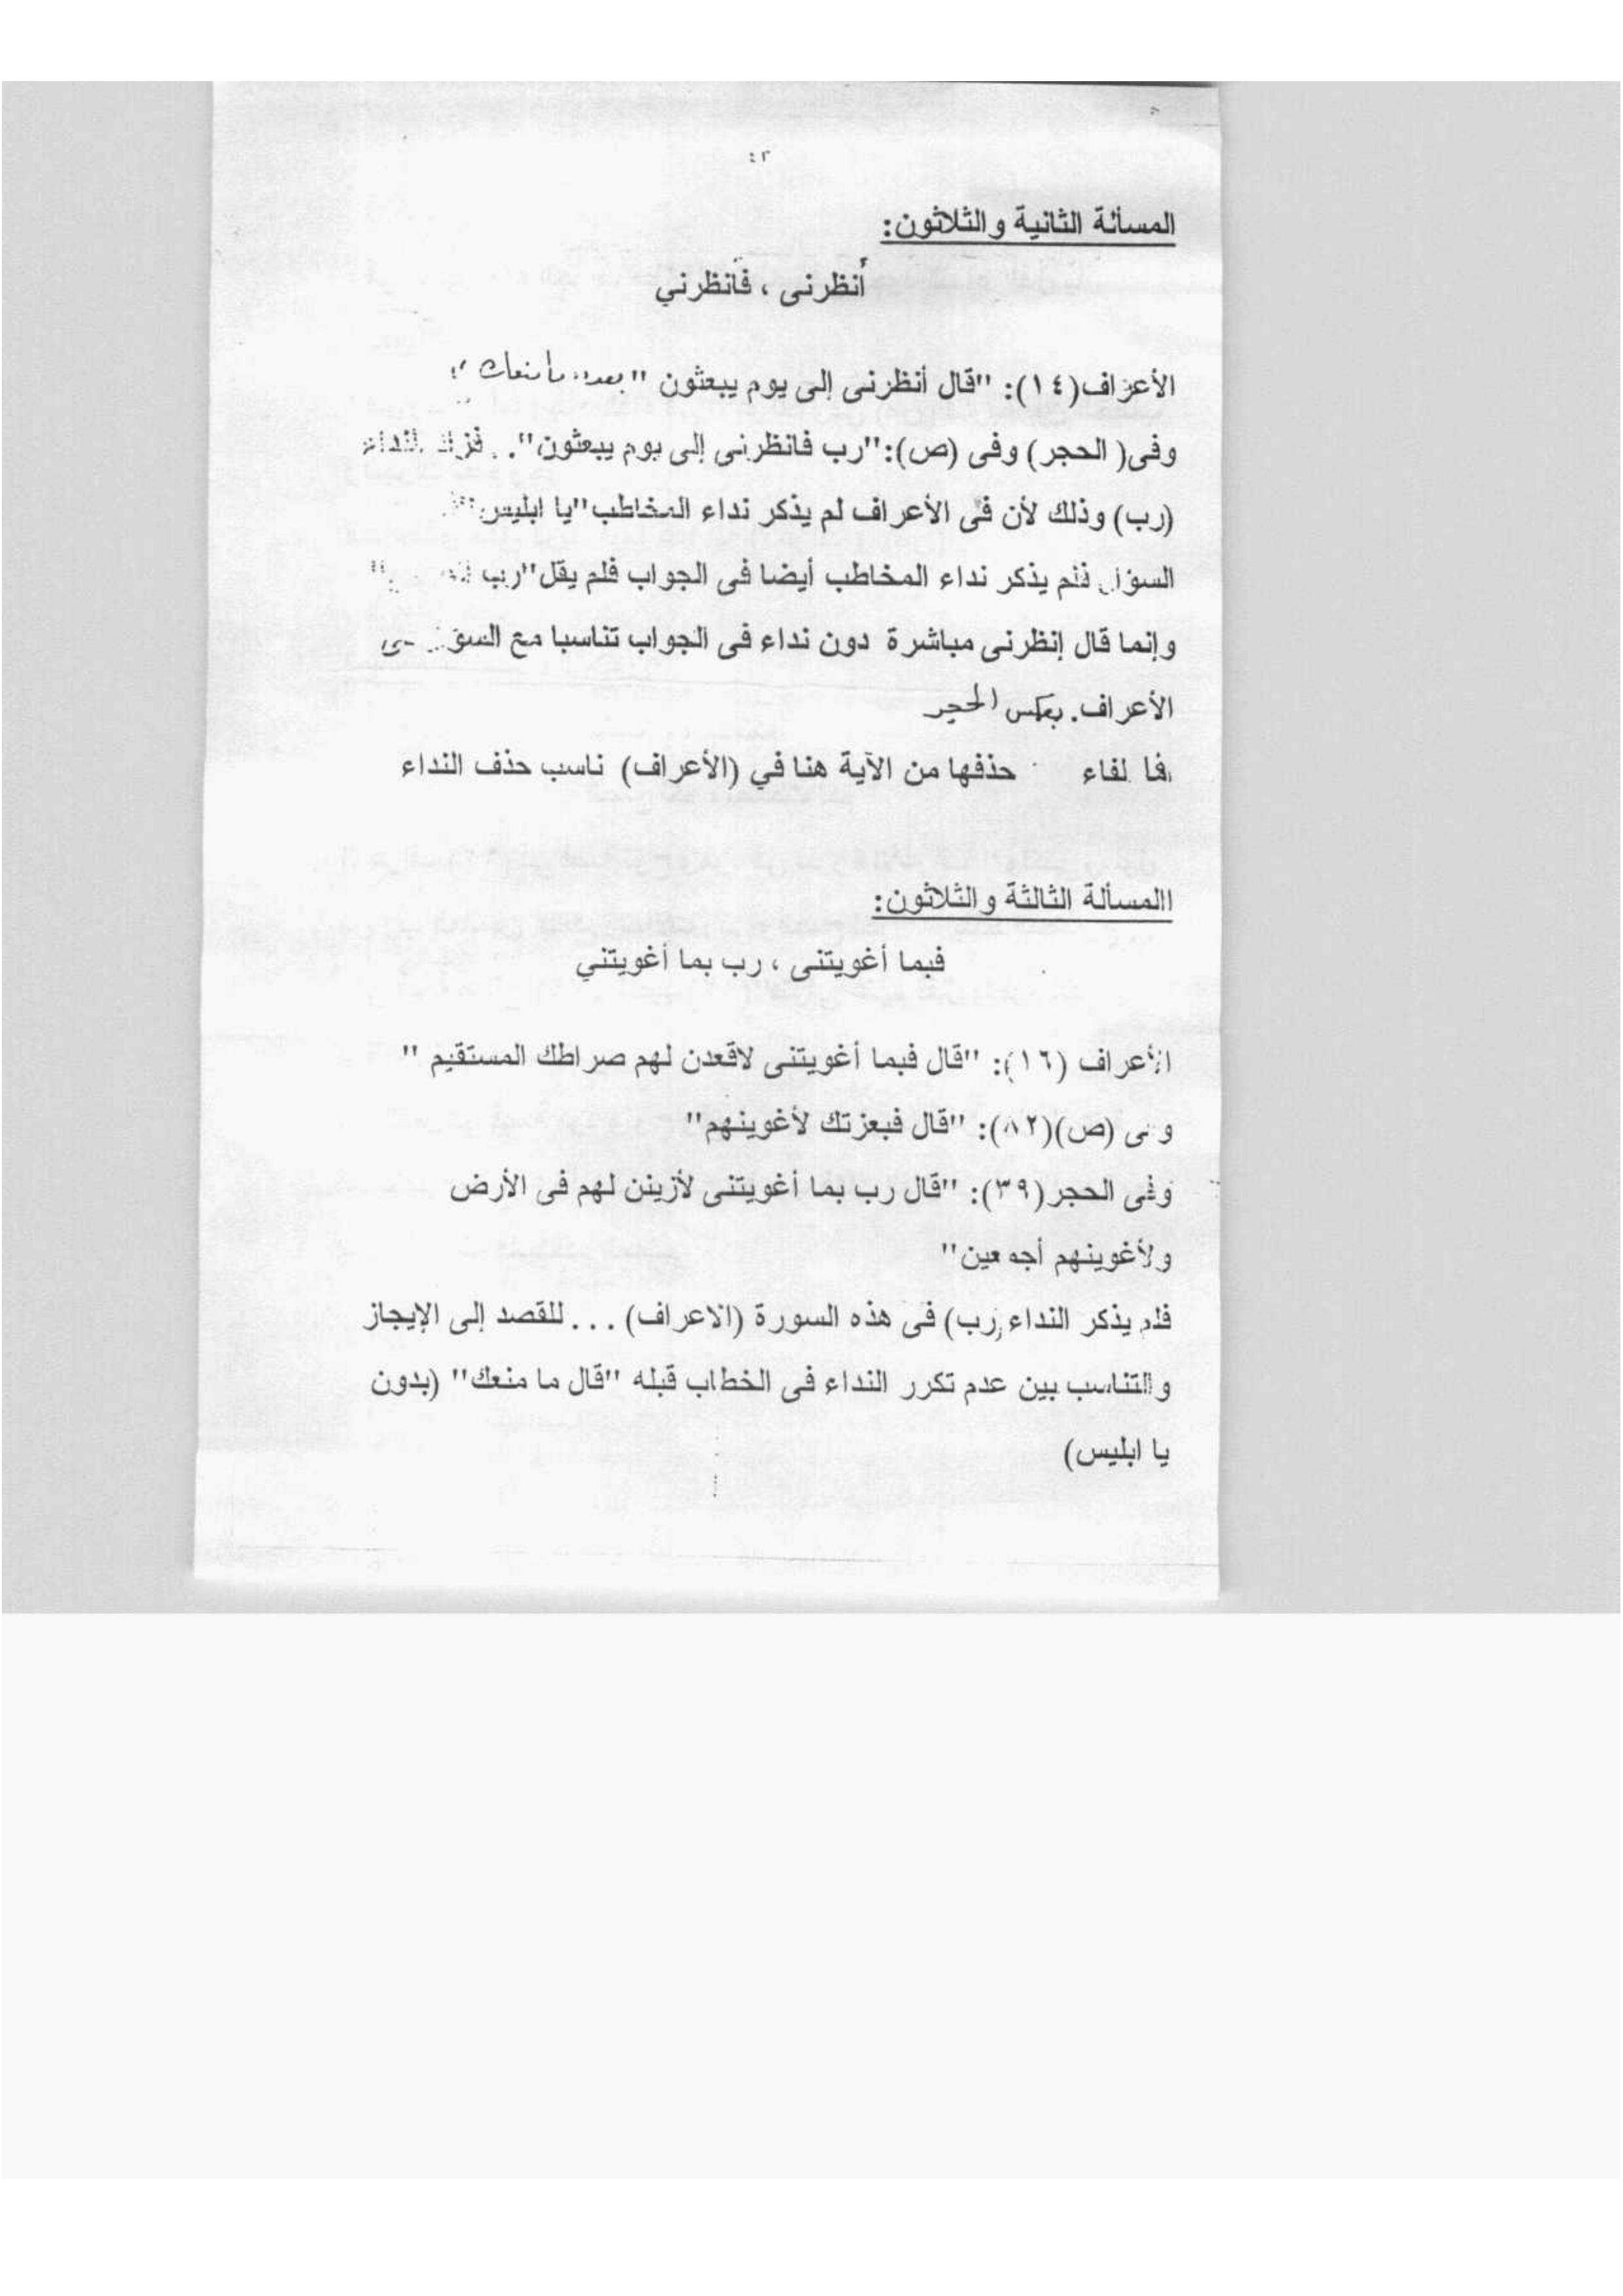 ٤٢
المسألة الثانية والثلاثون:
أنظرنى ، فأنظرني
الأعراف(١٤): "قال أنظرنى إلى يوم يبعثون "بعد ما منعك"
وفى( الحجر) وفى (ص):"رب فانظرنى إلى يوم يبعثون".. النداء
(رب) وذلك لأن فى الأعراف لم يذكر نداء المخاطب"يا ابليس"
السؤال فلم يذكر نداء المخاطب أيضا فى الجواب فلم يقل"رب
وإنما قال إنظرنى مباشرة دون نداء فى الجواب تناسبا مع
الأعراف. بعكس الحجر
حذفها من الآية هنا في (الأعراف) ناسب حذف النداء
االمسألة الثالثة والثلاثون:
فبما أغويتنى ، رب بما أغويتني
الأعراف (١٦): "قال فبما أغويتنى لاقعدن لهم صراطك المستقيم "
وفى (ص)(٨٢): "قال فبعزتك لأغوينهم"
وفى الحجر(٣٩): "قال رب بما أغويتنى لأزينن لهم فى الأرض
ولأغوينهم أجمعين"
فلم يذكر النداء(رب) فى هذه السورة (الاعراف) ... للقصد إلى الإيجاز
والتناسب بين عدم تكرر النداء فى الخطاب قبله "قال ما منعك" (بدون
يا ابليس)